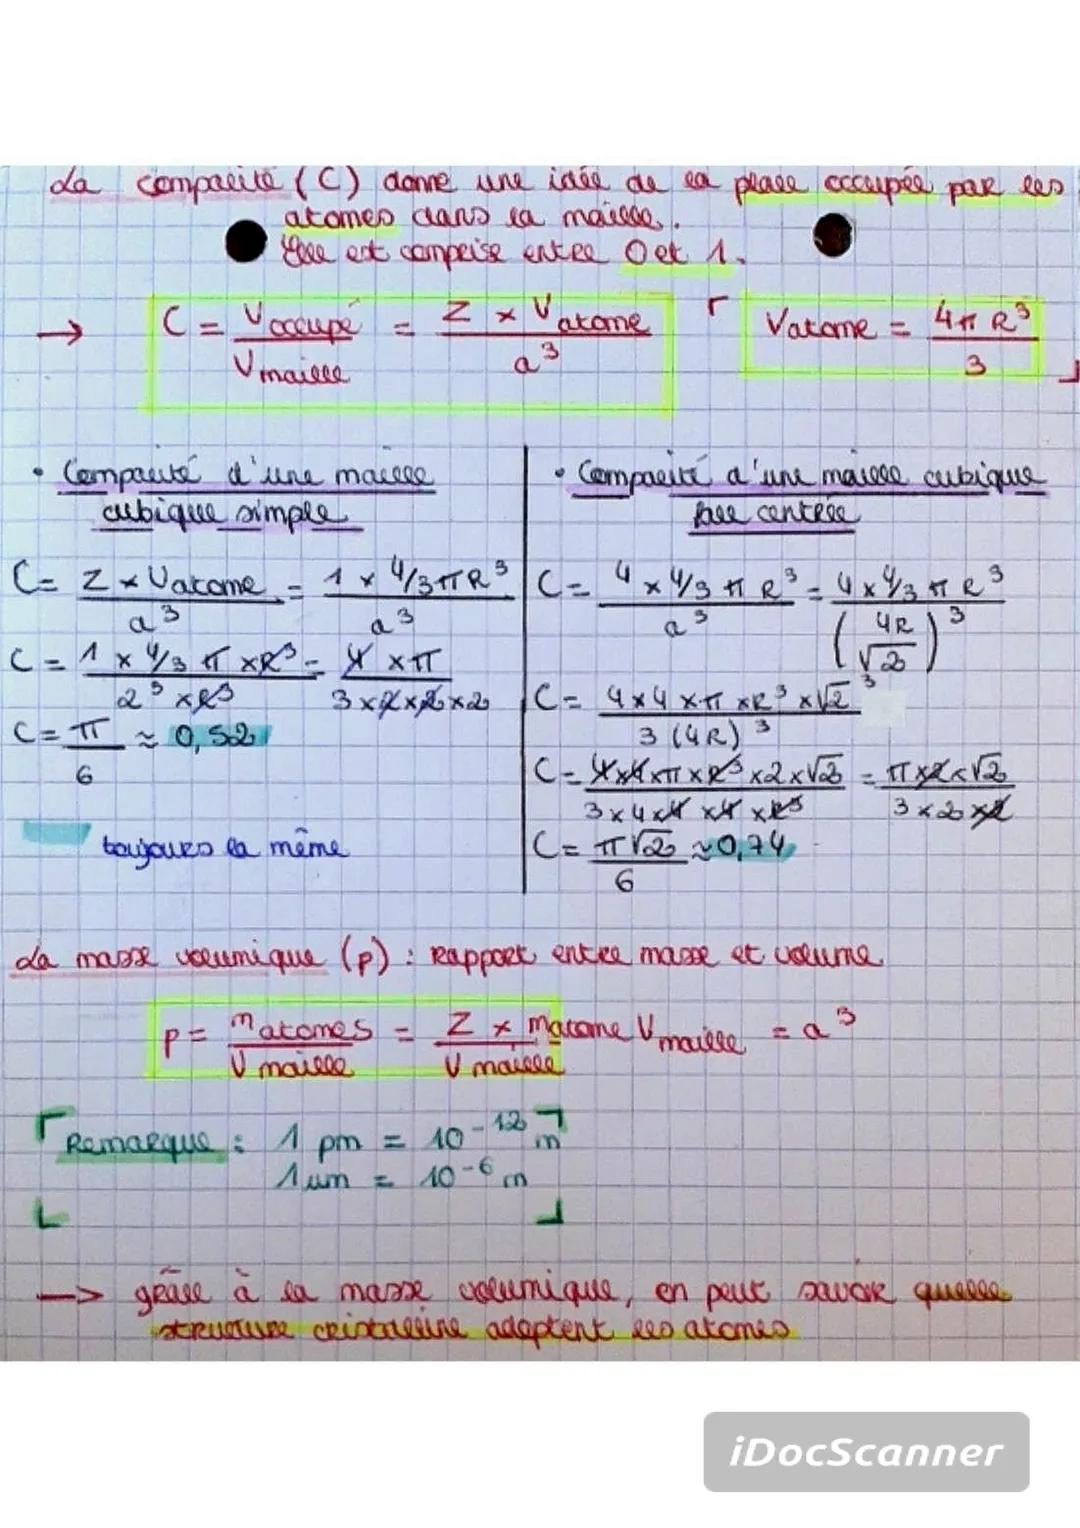 La compacité (C) donne une idée de la place occupée par les
atomes dans la maille.
Elle est comprise entre 0 et 1.
→ C = V occupé / V maille = Z × V atome / a³
V atome = 4πR³ / 3
• Compacité d'une maille
cubique simple
C = Z × V atome / a³ = 1 × 4/3 π R³ / a³
C = 1 × 4/3 π × R³ / 2³ × R³ = 4 × π / 3 × 2 × 2 × 2
C = π / 6 ≈ 0,52
toujours la même
• Compacité d'une maille cubique
face centrée
C = 4 × 4/3 π R³ / a³ = 4 × 4/3 π R³ / (4R / √2)³
C = 4 × 4 × π × R³ × √2³ / 3 (4R)³
C = 4 × 4 × π × R³ × 2 × √2 / 3 × 4 × 4 × 4 × R³ = π × 2 × √2 / 3 × 2 × 2
C = π√2 / 6 ≈ 0,74
La masse volumique (ρ) : rapport entre masse et volume
ρ = m atomes / V maille = Z × m atome / V maille V maille = a³
Remarque : 1 pm = 10⁻¹² m
1 um = 10⁻⁶ m
—> grâce à la masse volumique, on peut savoir quelle
structure cristalline adoptent les atomes
iDocScanner